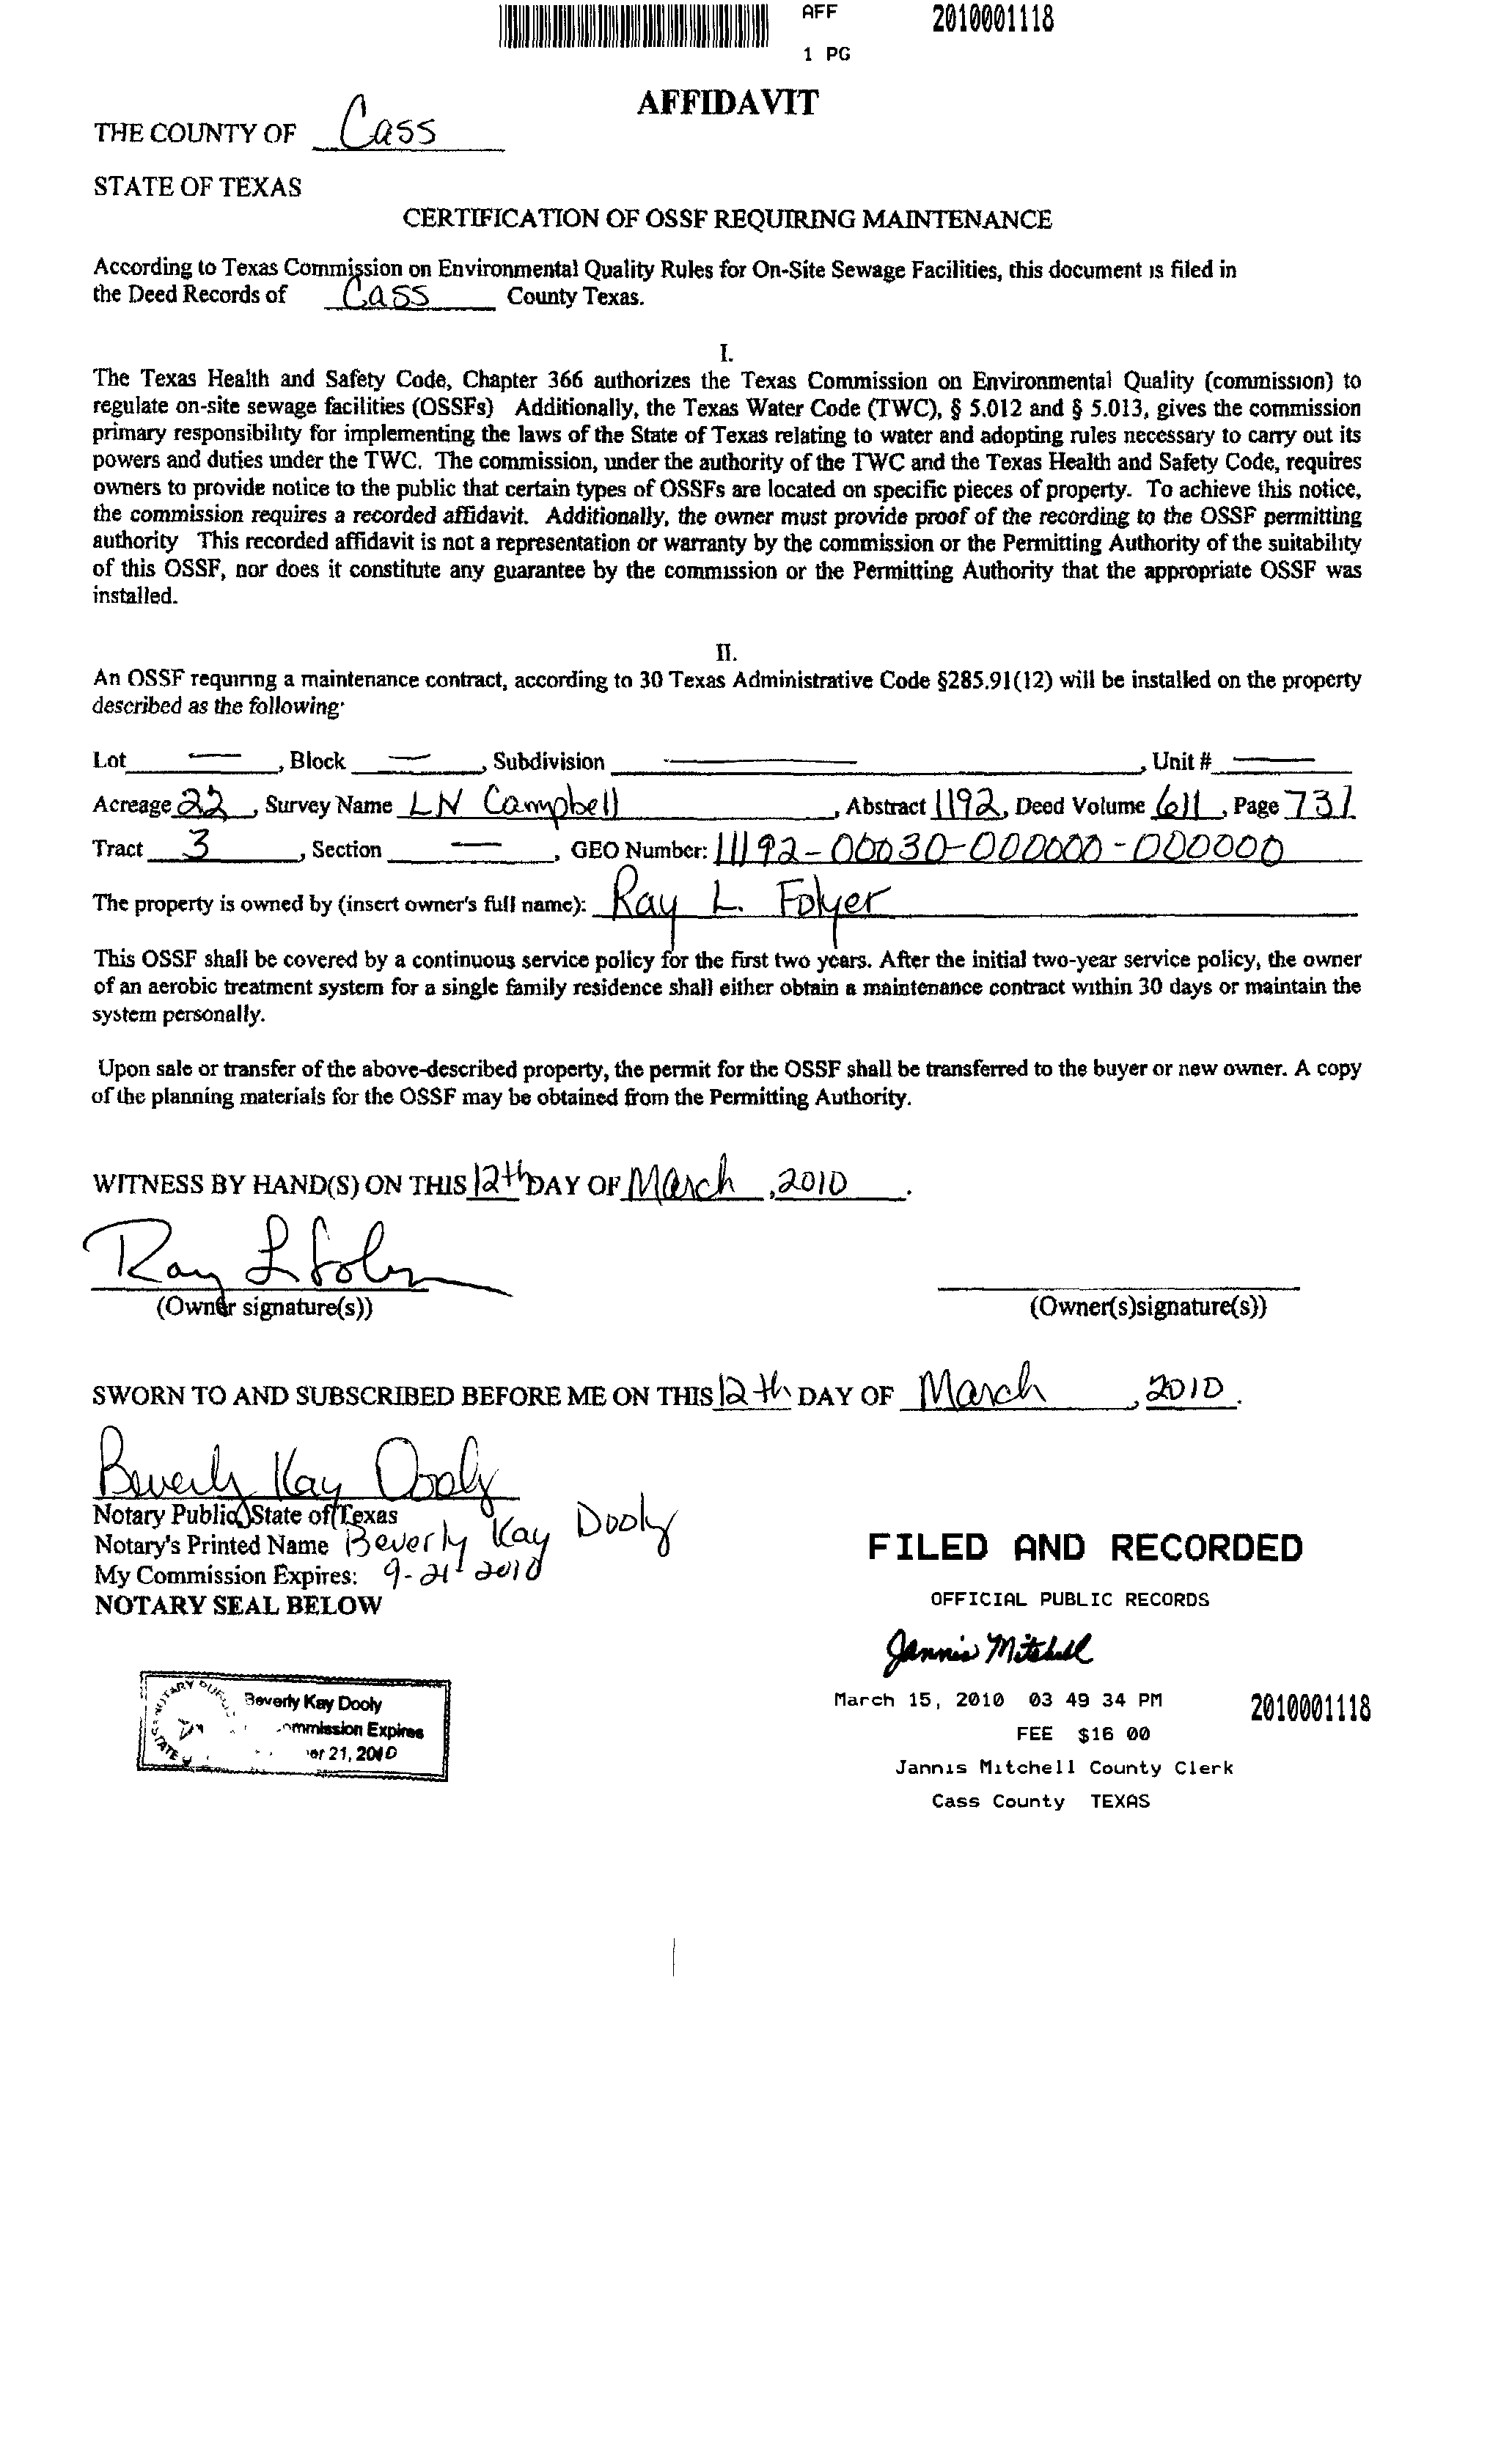 AFF 2010001118
1 PG
AFFIDAVIT
THE COUNTY OF Cass
STATE OF TEXAS
CERTIFICATION OF OSSF REQUIRING MAINTENANCE
According to Texas Commission on Environmental Quality Rules for On-Site Sewage Facilities, this document is filed in
the Deed Records of Cass County Texas.
I.
The Texas Health and Safety Code, Chapter 366 authorizes the Texas Commission on Environmental Quality (commission) to
regulate on-site sewage facilities (OSSFs) Additionally, the Texas Water Code (TWC), § 5.012 and § 5.013, gives the commission
primary responsibility for implementing the laws of the State of Texas relating to water and adopting rules necessary to carry out its
powers and duties under the TWC. The commission, under the authority of the TWC and the Texas Health and Safety Code, requires
owners to provide notice to the public that certain types of OSSFs are located on specific pieces of property. To achieve this notice,
the commission requires a recorded affidavit. Additionally, the owner must provide proof of the recording to the OSSF permitting
authority This recorded affidavit is not a representation or warranty by the commission or the Permitting Authority of the suitability
of this OSSF, nor does it constitute any guarantee by the commission or the Permitting Authority that the appropriate OSSF was
installed.
II.
An OSSF requiring a maintenance contract, according to 30 Texas Administrative Code §285.91(12) will be installed on the property
described as the following:
Lot —, Block —, Subdivision —, Unit # —
Acreage 22, Survey Name LN Campbell, Abstract 1192, Deed Volume 611, Page 731
Tract 3, Section —, GEO Number: 11192-00030-000000-000000
The property is owned by (insert owner's full name): Ray L. Folyer
This OSSF shall be covered by a continuous service policy for the first two years. After the initial two-year service policy, the owner
of an aerobic treatment system for a single family residence shall either obtain a maintenance contract within 30 days or maintain the
system personally.
Upon sale or transfer of the above-described property, the permit for the OSSF shall be transferred to the buyer or new owner. A copy
of the planning materials for the OSSF may be obtained from the Permitting Authority.
WITNESS BY HAND(S) ON THIS 12th DAY OF March, 2010.
Ray L
(Owner signature(s)) (Owner(s)signature(s))
SWORN TO AND SUBSCRIBED BEFORE ME ON THIS 12th DAY OF March, 2010.
Beverly Kay Dooly
Notary Public, State of Texas
Notary's Printed Name Beverly Kay Dooly
My Commission Expires: 9-21-2010
NOTARY SEAL BELOW
FILED AND RECORDED
OFFICIAL PUBLIC RECORDS
Jannis Mitchell
March 15, 2010 03 49 34 PM 2010001118
FEE $16 00
Jannis Mitchell County Clerk
Cass County TEXAS
NOTARY
STATE
Beverly Kay Dooly
ommission Expires
er 21, 2010